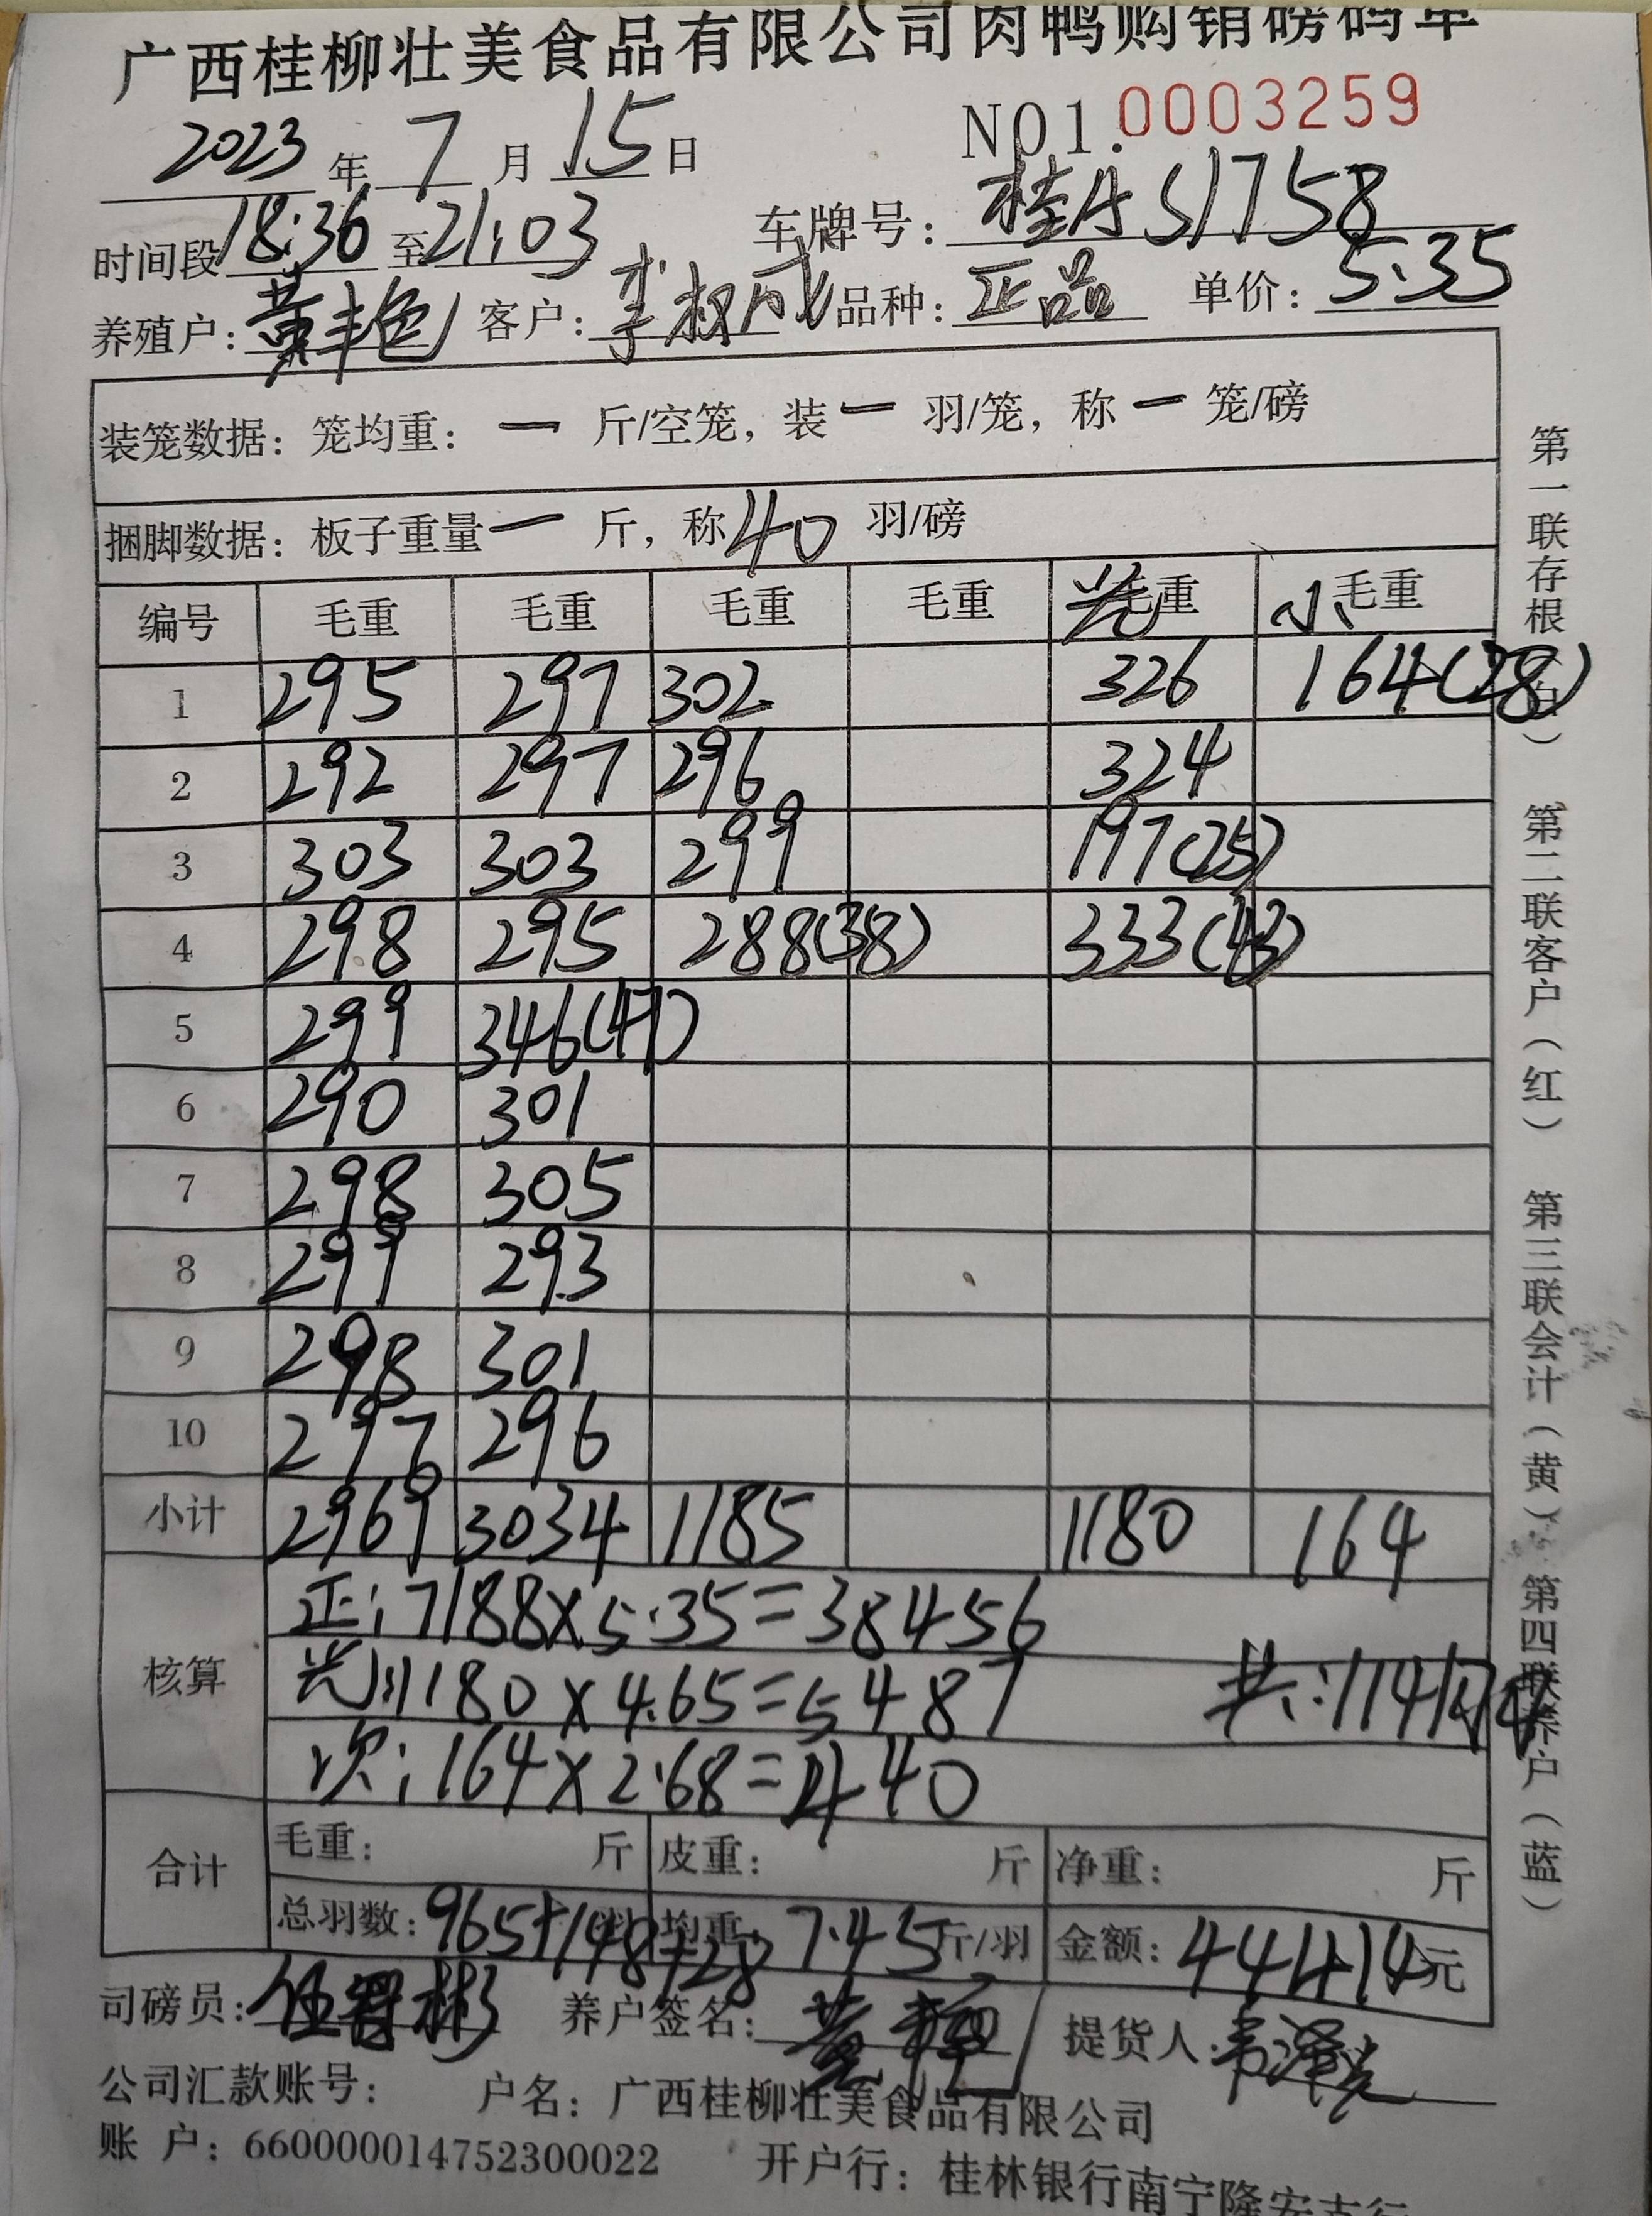 广西桂柳壮美食品有限公司肉鸭购销磅码单
2023年7月15日 NO1.0003259
时间段18:36至21:03 车牌号:桂A S1758
养殖户:黄丰艳 客户:李叔成 品种:正品 单价:5.35
装笼数据:笼均重:一斤/空笼,装一羽/笼,称一笼/磅
捆脚数据:板子重量一斤,称40羽/磅
编号 毛重 毛重 毛重 毛重 光毛重 小毛重
1 295 297 302 326 164(28)
2 292 297 296 324
3 303 303 299 197(25)
4 298 295 288(38) 333(43)
5 299 346(47)
6 290 301
7 298 305
8 299 293
9 298 301
10 297 296
小计 2969 3034 1185 1180 164
核算
正:7188×5.35=38456
光:1180×4.65=5487 共:1141
次:164×2.68=440
合计 毛重: 斤 皮重: 斤 净重: 斤
总羽数:965+148+28 均重:7.45斤/羽 金额:44414元
司磅员:伍 彬 养户签名:黄 提货人:韦泽
公司汇款账号: 户名:广西桂柳壮美食品有限公司
账 户:660000014752300022 开户行:桂林银行南宁隆安支行
第一联存根(白) 第二联客户(红) 第三联会计(黄) 第四联养户(蓝)